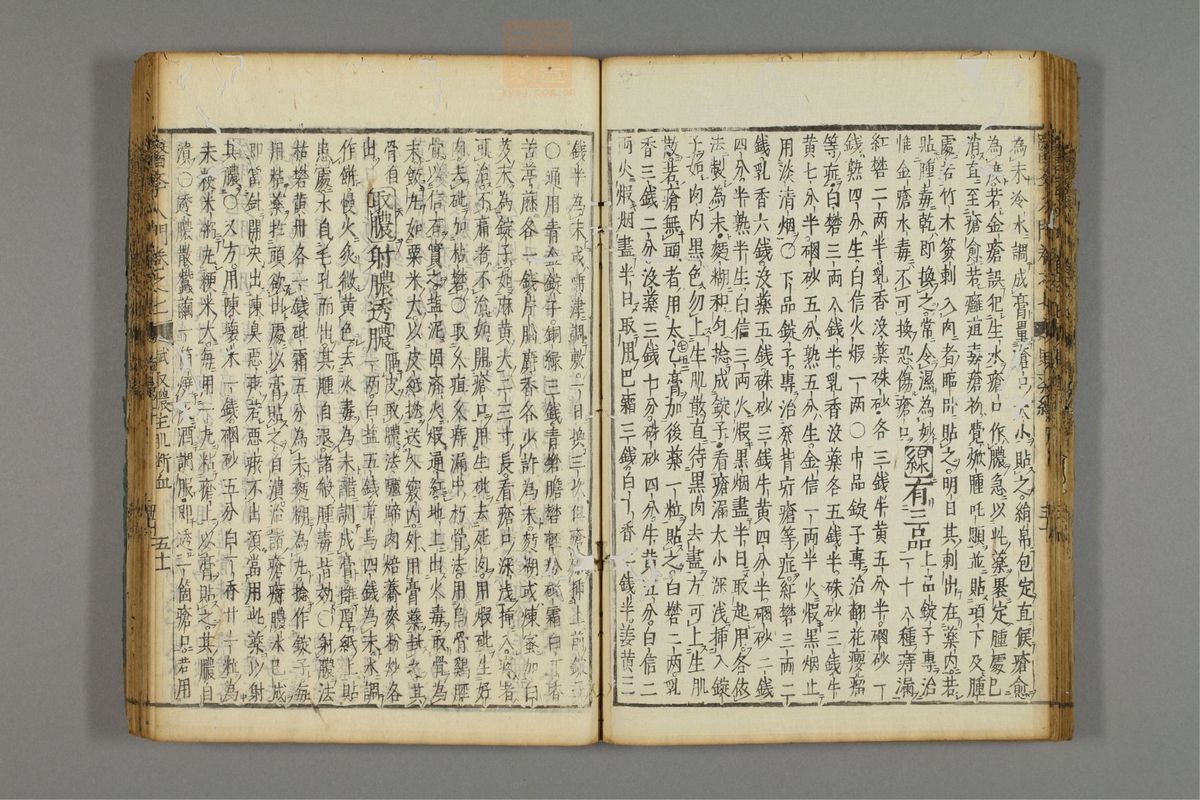 為末冷水調成膏量瘡口大小貼之綿帛包定直候瘡愈
為度若金瘡誤犯生水瘡口作膿急以此藥裹定腫處已
消直至瘡愈若蘚道毒瘡初覺焮腫吒顋並貼項下及腫
處若竹木簽刺入肉者臨卧貼之明日其刺出在藥內若
貼腫毒乾即換之常令濕為妙
惟金瘡水毒不可換恐傷瘡口線有三品上品錠子專治一十八種痔漏
紅礬二兩半乳香沒藥硃砂各三錢牛黃五分半硇砂一
錢熟四分生白信火煅一兩〇中品錠子專治翻花癭瘤
等症白礬三兩八錢半乳香沒藥各五錢半硃砂三錢牛
黃七分半硇砂五分熟五分生金信一兩半火煅黑烟止
用淡清烟〇下品錠子專治發背疔瘡等症紅礬三兩二
錢乳香六錢沒藥五錢硃砂三錢牛黃四分半硇砂二錢
四分半熟半生白信三兩火煅黑烟盡半日取起用各依
法製為末麵糊和勻捻成錠子看瘡漏大小深淺插入錠
子如肉內黑色勿上生肌散直待黑肉去盡方可上生肌
散若瘡無頭者用太乙膏加後藥一粒貼之白礬二兩乳
香三錢二分沒藥三錢七分硃砂四分牛黃五分白信二
兩火煅烟盡半日取用巴霜三錢白丁香二錢半姜黃三
錢半為末或津調敷一日換三次
〇通用青金錠子銅綠三錢青黛膽礬輕粉砒霜白丁香
苦葶藶各一錢片腦麝香各少許為末麵糊或煉蜜加白
芨末為錠子如麻黃大二三寸長看瘡口深淺插入疼者
可治不痛者不治如開瘡口用生砒去死肉用煅砒生好
肉去砒加枯礬〇取久疽久痔漏中朽骨法用烏骨雞脛
骨以信有實之鹽泥固濟火煅通紅地上出火毒取骨為
末飯丸如粟米大以皮紙撚送入竅內外用膏藥封之其
骨自
出取膿射膿透膿隔皮取膿法驢蹄肉焙蕎麥粉炒各一兩白鹽五錢草烏四錢為末水調
作餅慢火炙微黃色去火毒為末醋調成膏攤厚紙上貼
患處水自毛孔而出其腫自退諸般腫毒皆效〇射膿法
枯礬黃丹各一錢砒霜五分為末麵糊為丸捻作錠子每
用粘藥
即當針開決出陳臭惡瘀若惡瘀不出須當用此藥以射
其膿〇又方用陳壞米一錢硇砂五分白丁香廿一粒為
末粳米粥丸粳米大每用一丸粘瘡上以膏貼之其膿自
潰〇透膿散蠶繭一箇燒灰酒調服即透一箇瘡口若用